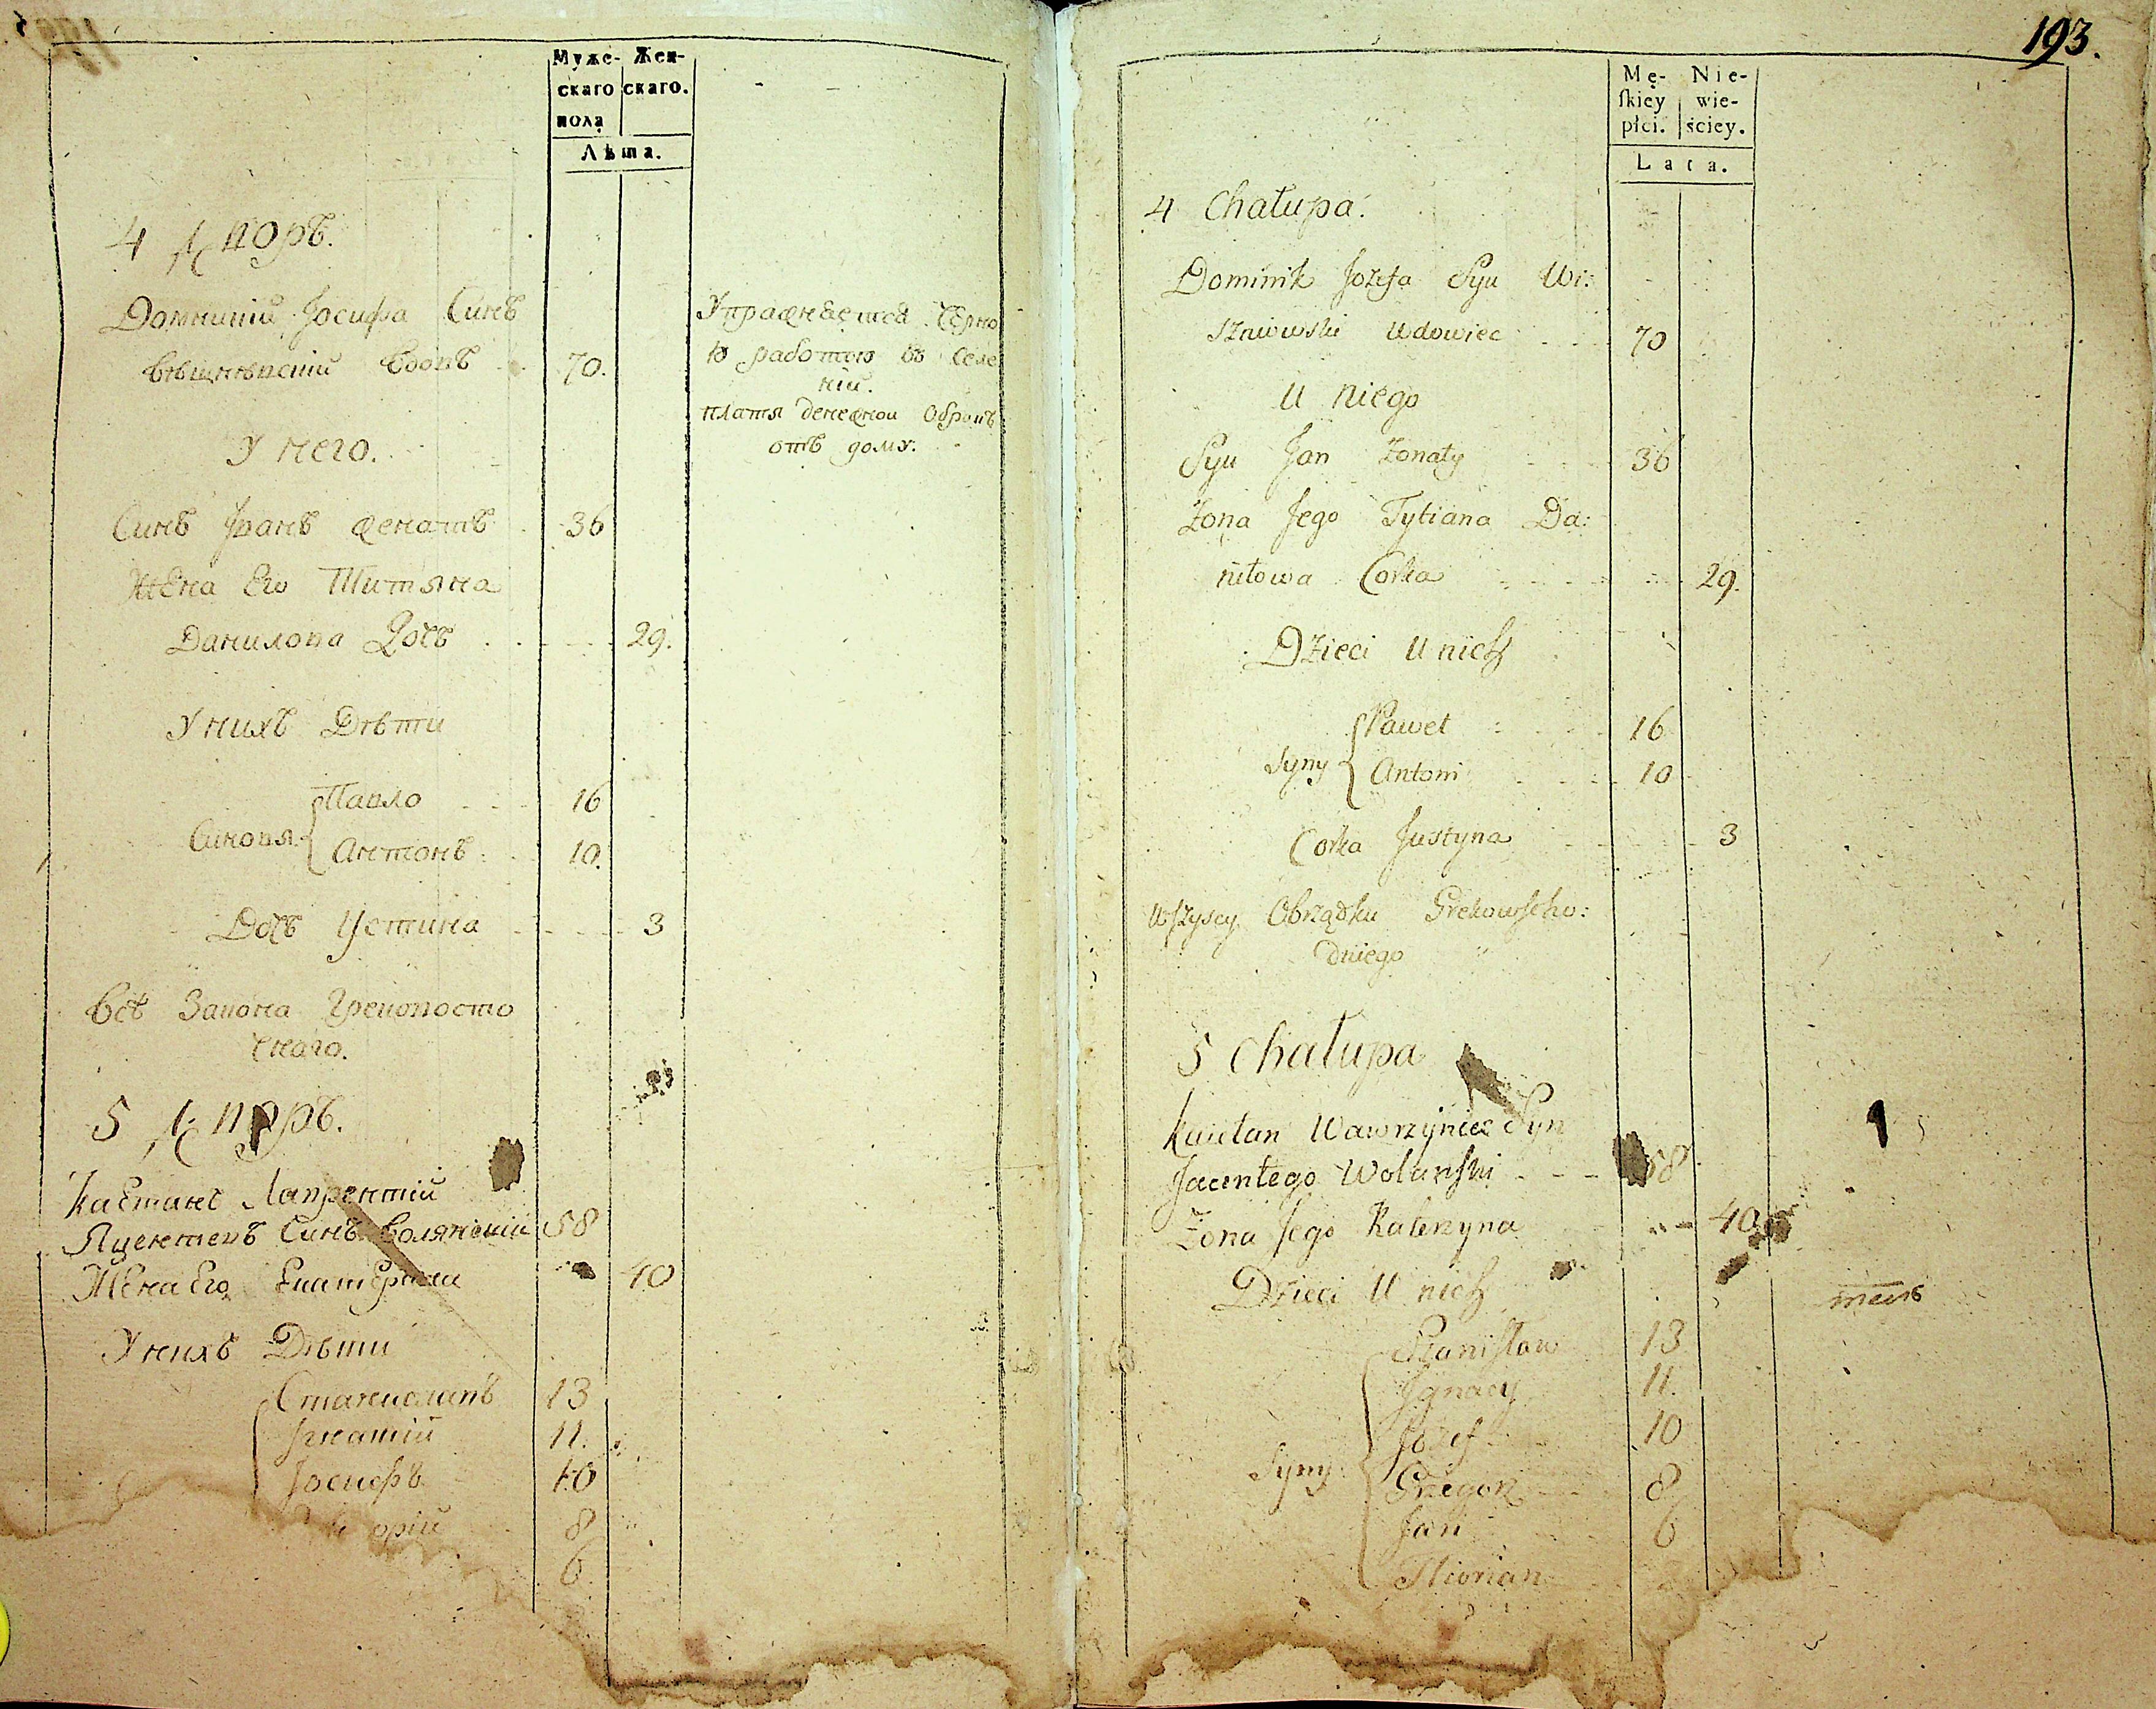 Муже- Жен-
скаго скаго.
пола
Лѣта.
4 Дворъ.
Доминикій Іосифа Синъ
Вѣшнѣвскій Вдовъ 70.
Упражняется Черно
ю работою въ Селе
ніи.
платя денежной Оброкъ
отъ дому.
У него.
Синъ Іванъ женатъ 36
Жена Его Титяна
Данилова Дочъ 29.
У нихъ Дѣти
Синовя Павло 16
Антонъ 10.
Дочъ Устина 3
Всѣ Закона Грековосто
чнаго.
5 Дворъ.
Каетанъ Лаврентій
Яцентевъ Синъ Волянскій 58
Жена Его Екатерина 40
У нихъ Дѣти
Станиславъ 13
Ігнатій 11.
Іосифъ 10
орій 8
6
193.
Mę- Nie-
ſkiey wie-
płci. ściey.
Lata.
4 Chałupa.
Dominik Jozefa Syn Wi:
szniwski Wdowiec 70
U niego
Syn Jan Żonaty 36
Żona Jego Tytiana Da:
niłowa Corka 29.
Dzieci U nich
Syny Paweł 16
Antoni 10
Corka Justyna 3
Wſzyscy Obrządku Grekowſcho:
dniego
5 Chałupa
Kaietan Wawrzyniec Syn
Jacentego Wolanſki 58
Żona Jego Katerzyna 40
Dzieci U nich
Stanisław 13
Ignacy 11.
Jozef 10
Syny Grzegorz 8
Jan 6
Floryan